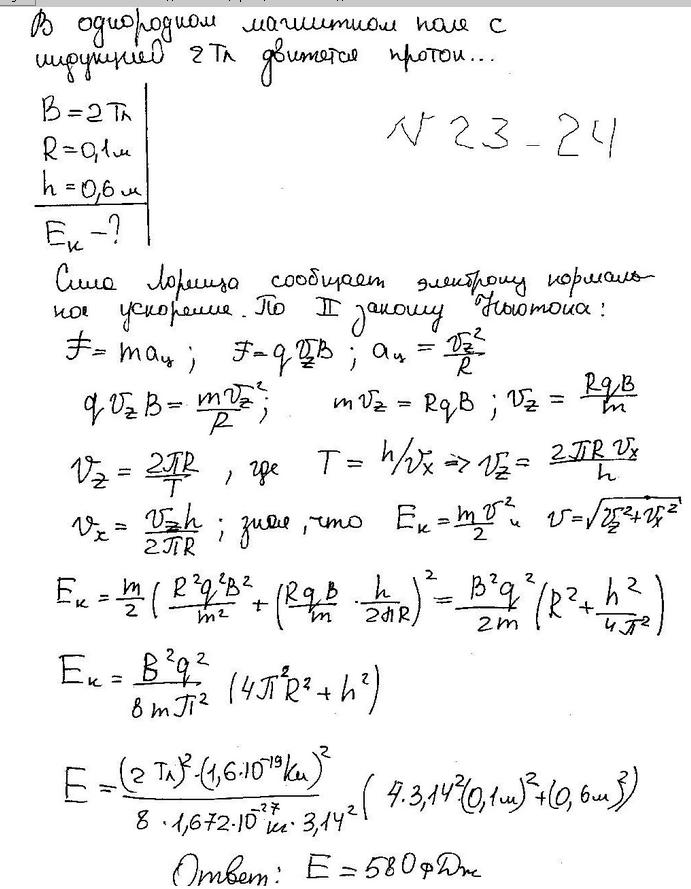 В однородном магнитном поле с
индукцией 2 Тл движется протон...
B = 2 Тл
R = 0,1 м
h = 0,6 м
Eк – ?
N 23 - 24
Сила Лоренца сообщает электрону нормаль-
ное ускорение. По II закону Ньютона:
F = maц ; F = q v_z B ; aц = v_z²/R
q v_z B = mv_z²/R ; mv_z = RqB ; v_z = RqB/m
v_z = 2πR/T , где T = h/v_x => v_z = 2πR v_x/h
v_x = v_z h/2πR ; зная, что Eк = mv²/2 и v = √(v_z² + v_x²)
Eк = m/2 (R²q²B²/m² + (RqB/m · h/2πR)² = B²q²/2m (R² + h²/4π²)
Eк = B²q²/8mπ² (4π²R² + h²)
E = (2 Тл)²·(1,6·10⁻¹⁹Кл)²/8·1,672·10⁻²⁷кг·3,14² (4·3,14²(0,1м)²+(0,6м)²)
Ответ: E = 580 фДж